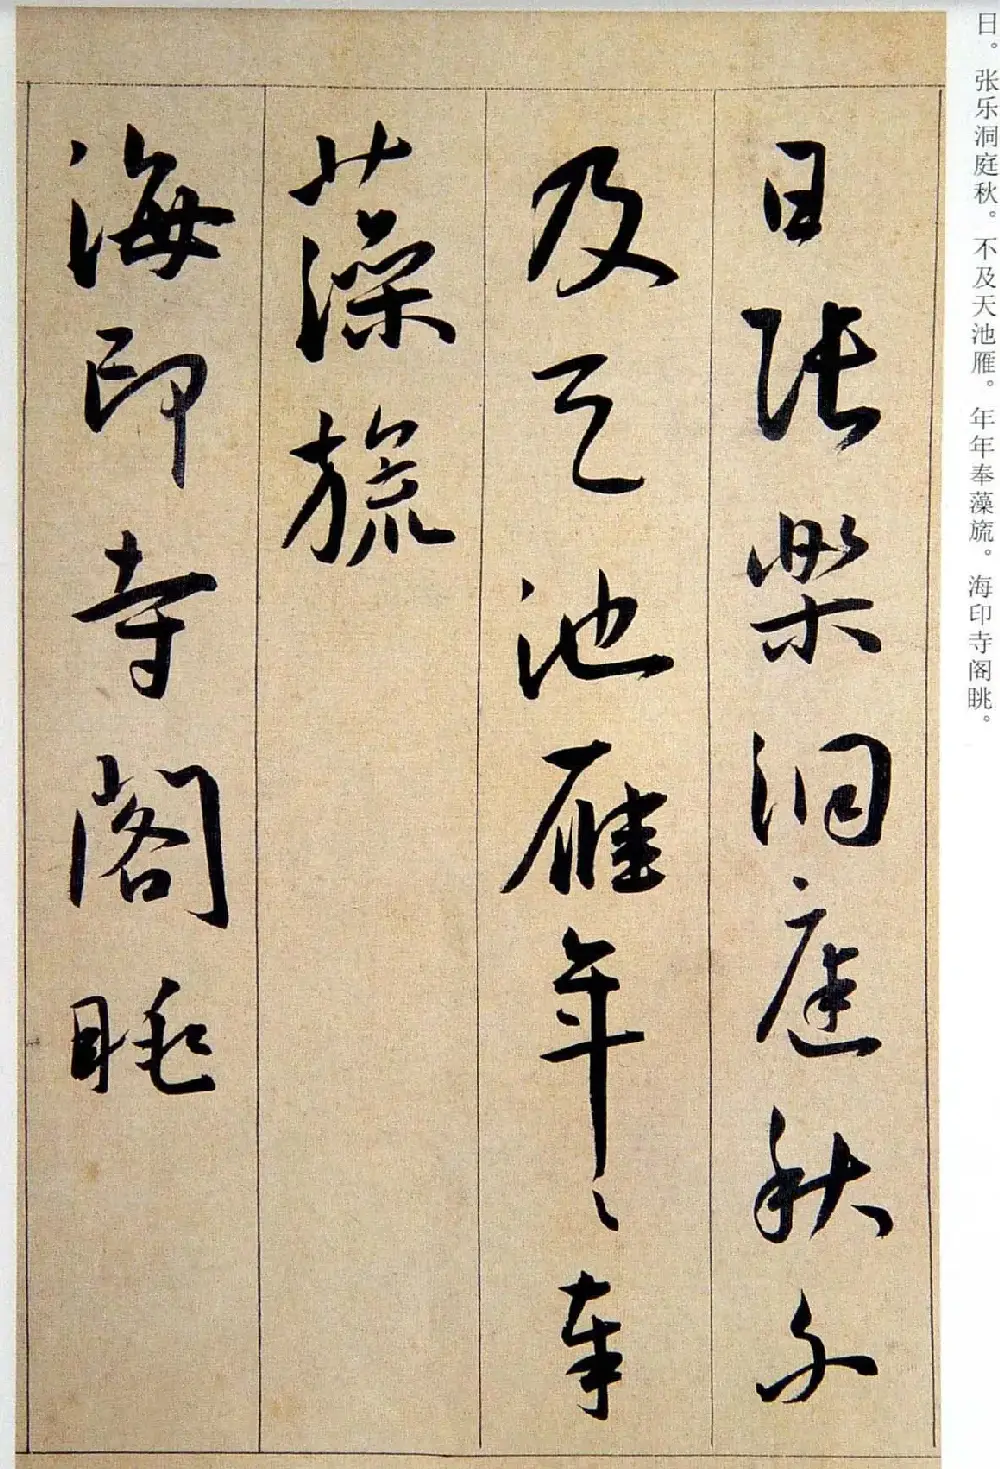 日。张乐洞庭秋。不及天池雁。年年奉藻旒。海印寺阁眺。
日張樂洞庭秋不
及天池雁年〻奉
藻旒
海印寺閣眺